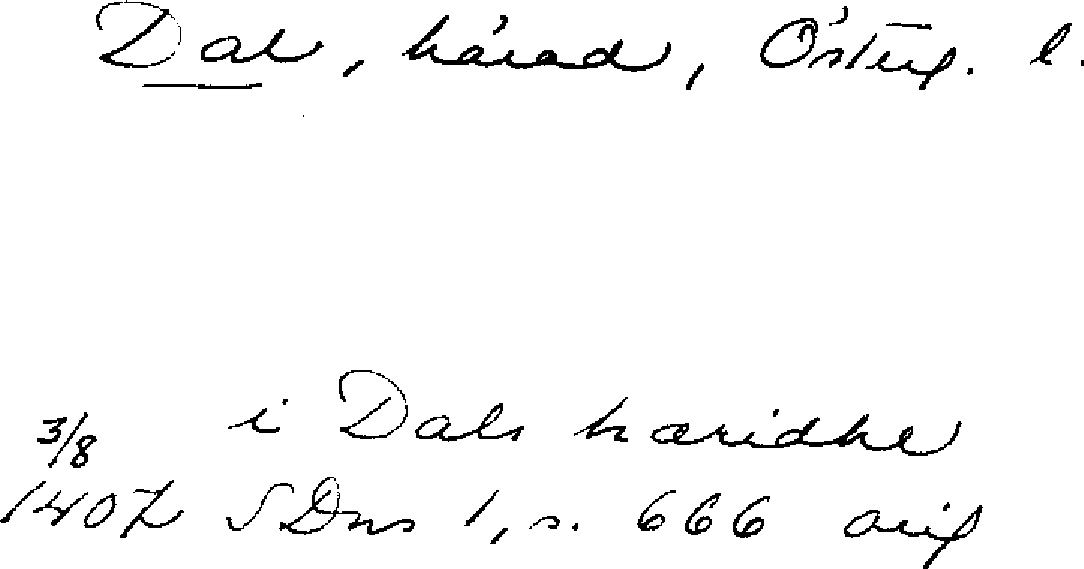 Dal, härad, Österg. l.
3/8 i Dals hæridhe
1407 SDns 1, s. 666 orig